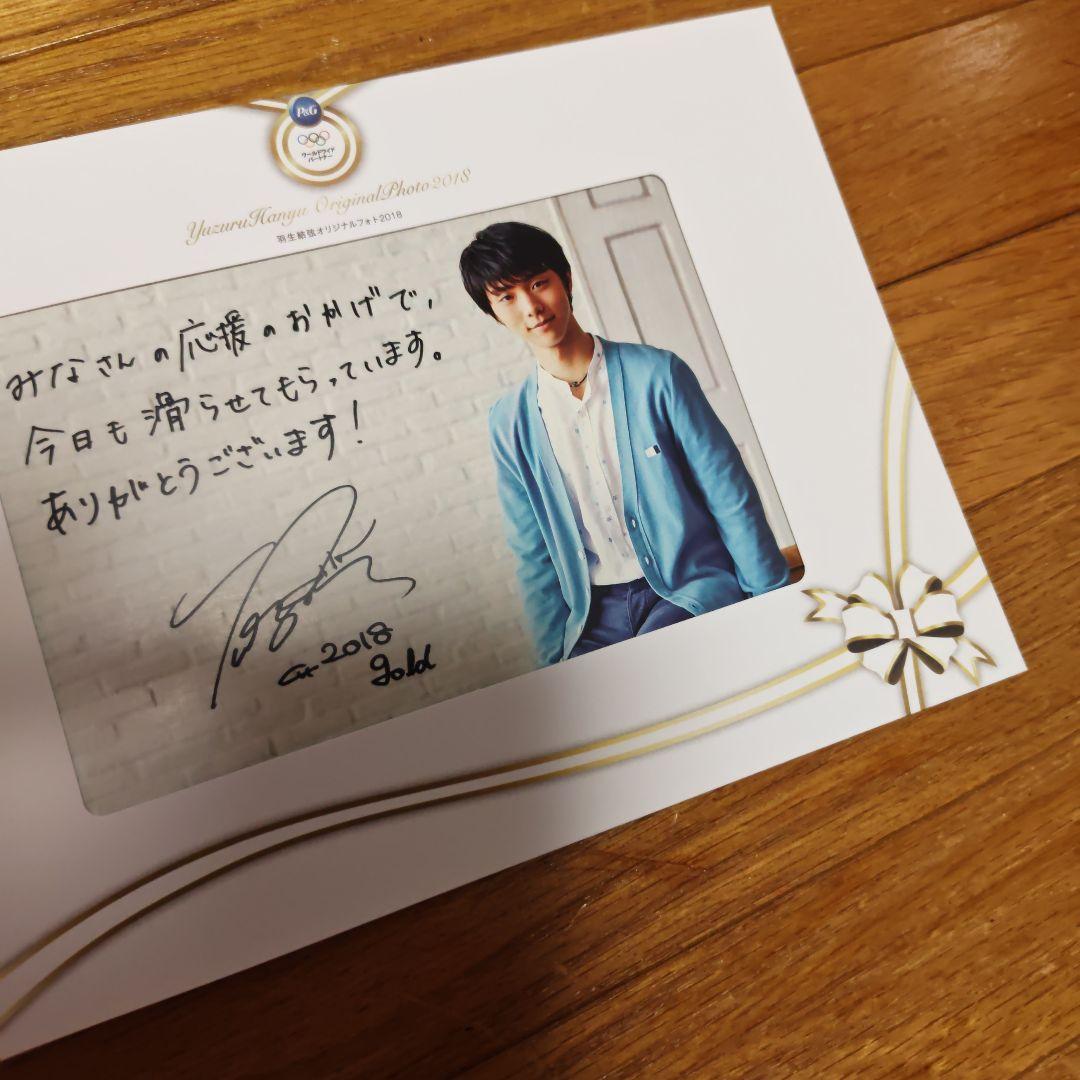 P&G
ワールドワイド
パートナー
YuzuruHanyu OriginalPhoto2018
羽生結弦オリジナルフォト2018
みなさんの応援のおかげで、
今日も滑らせてもらっています。
ありがとうございます!
2018
gold